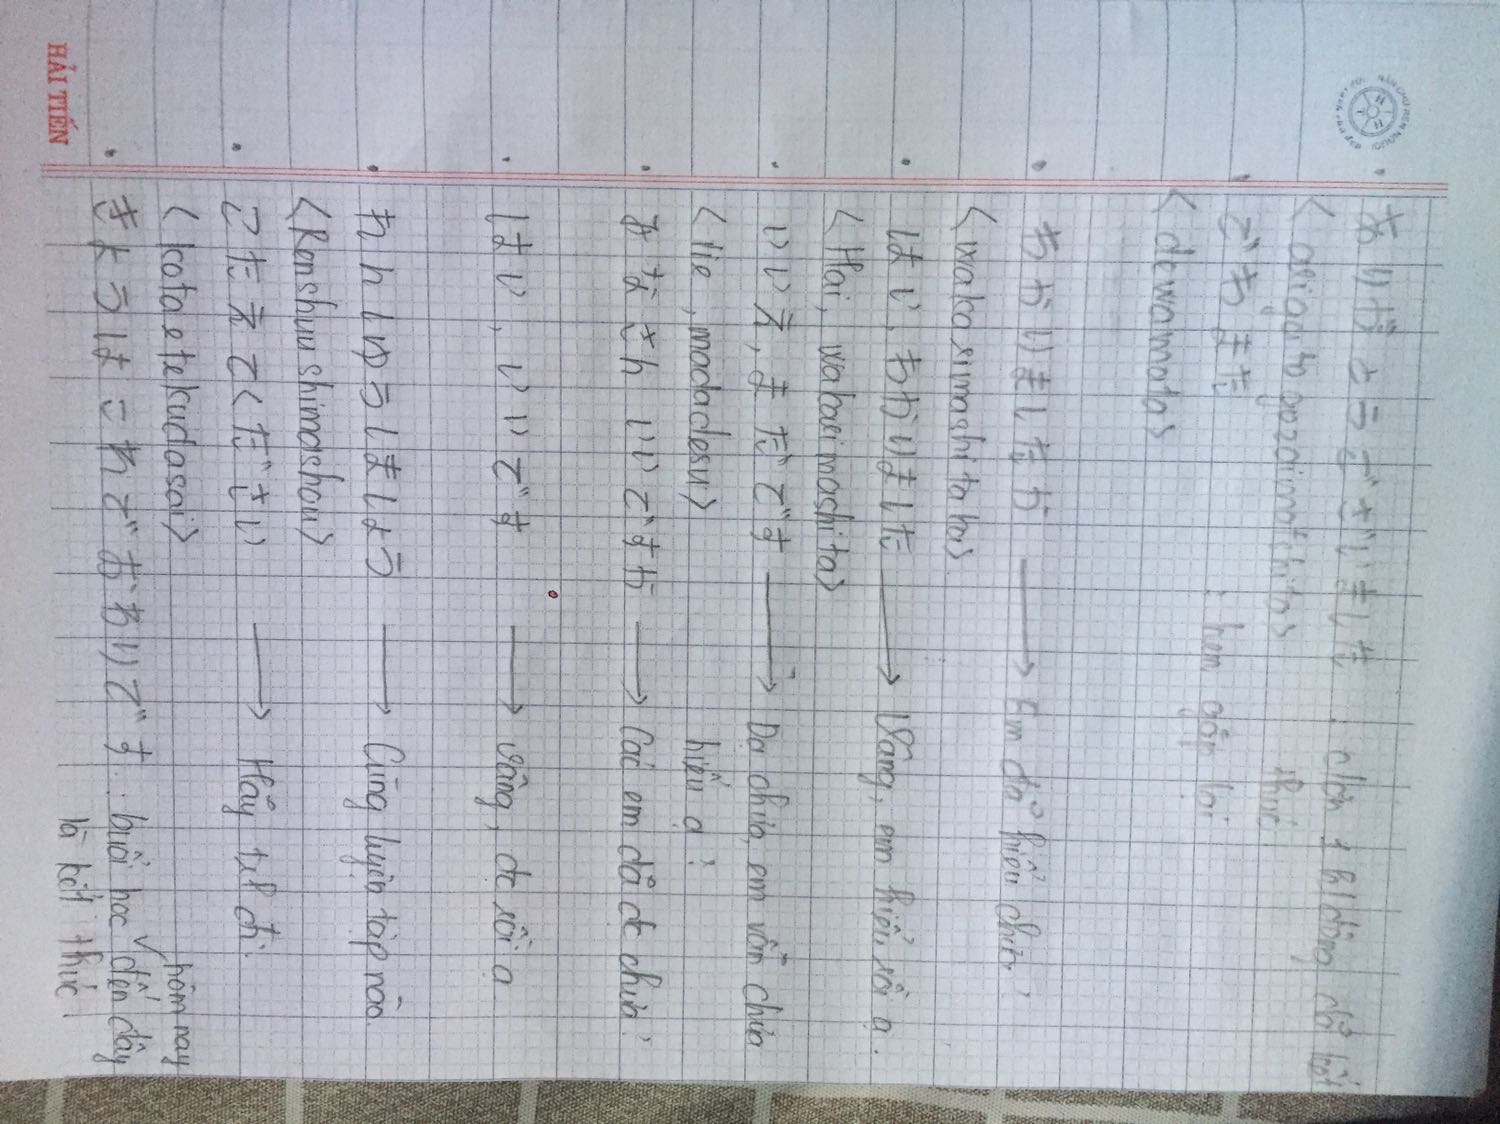 ありがとうございました : cảm ơn vì hành động đã kết
<arigato gozaimashita> thúc
でわまた : hẹn gặp lại
<dewamata>
わかりましたか → Em đã hiểu chưa?
<wakasimashita ka>
はい, わかりました → Vâng, em hiểu rồi ạ.
<Hai, wakasimashita>
いいえ, まだです → Dạ chưa, em vẫn chưa
<Iie, madadesu> hiểu ạ?
みなさん いいですか → Các em đã đc chưa?
はい, いいです → Vâng, đc rồi ạ
れんしゅうしましょう → Cùng luyện tập nào.
<Renshuu shimashou>
こたえてください → Hãy trl đi.
<kotaetekudasai>
hôm nay
きょうは これで おわりです : buổi học ✓ đến đây
là kết thúc.
HẢI TIẾN